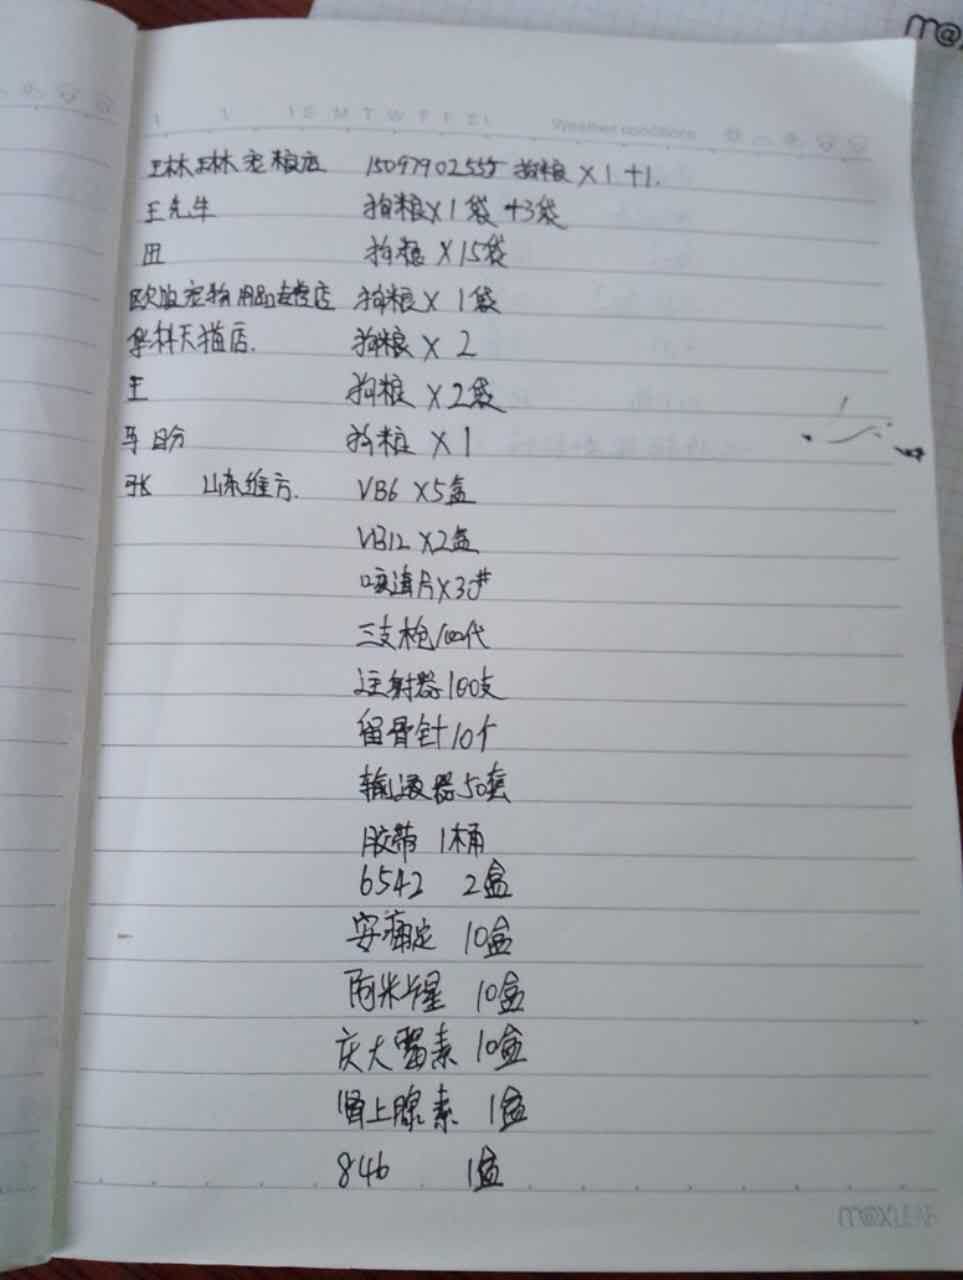 m@x
Weather conditions
琳琳宠粮店 15097902555 狗粮 X 1 +1.
王先生 狗粮 X 1袋 +3袋
田 狗粮 X 15袋
宠物用品专营店 狗粮 X 1袋
华科天猫店. 狗粮 X 2
王 狗粮 X 2袋
狗粮 X 1
张 山东维方. VB6 X5盒
VB12 X2盒
片X30#
三支枪100代
注射器100支
留骨针10个
输液器50套
胶带 1桶
6542 2盒
安痛定 10盒
阿米卡星 10盒
庆大霉素 10盒
肾上腺素 1盒
846 1盒
m@XLEAF